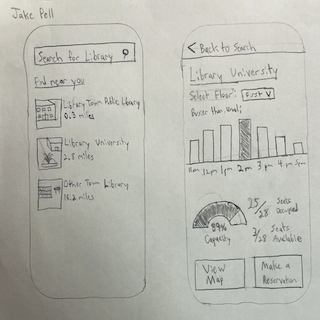 Jake Pell
Search for Library
Find near you
Library Town Public Library
0.3 miles
Library University
2.8 miles
Other Town Library
16.2 miles
< Back to Search
Library University
Select Floor: First V
Busier than usual:
11am 12pm 1pm 2pm 3pm 4pm 5pm
89%
Capacity
25/28 Seats Occupied
3/28 Seats Available
View Map
Make a Reservation